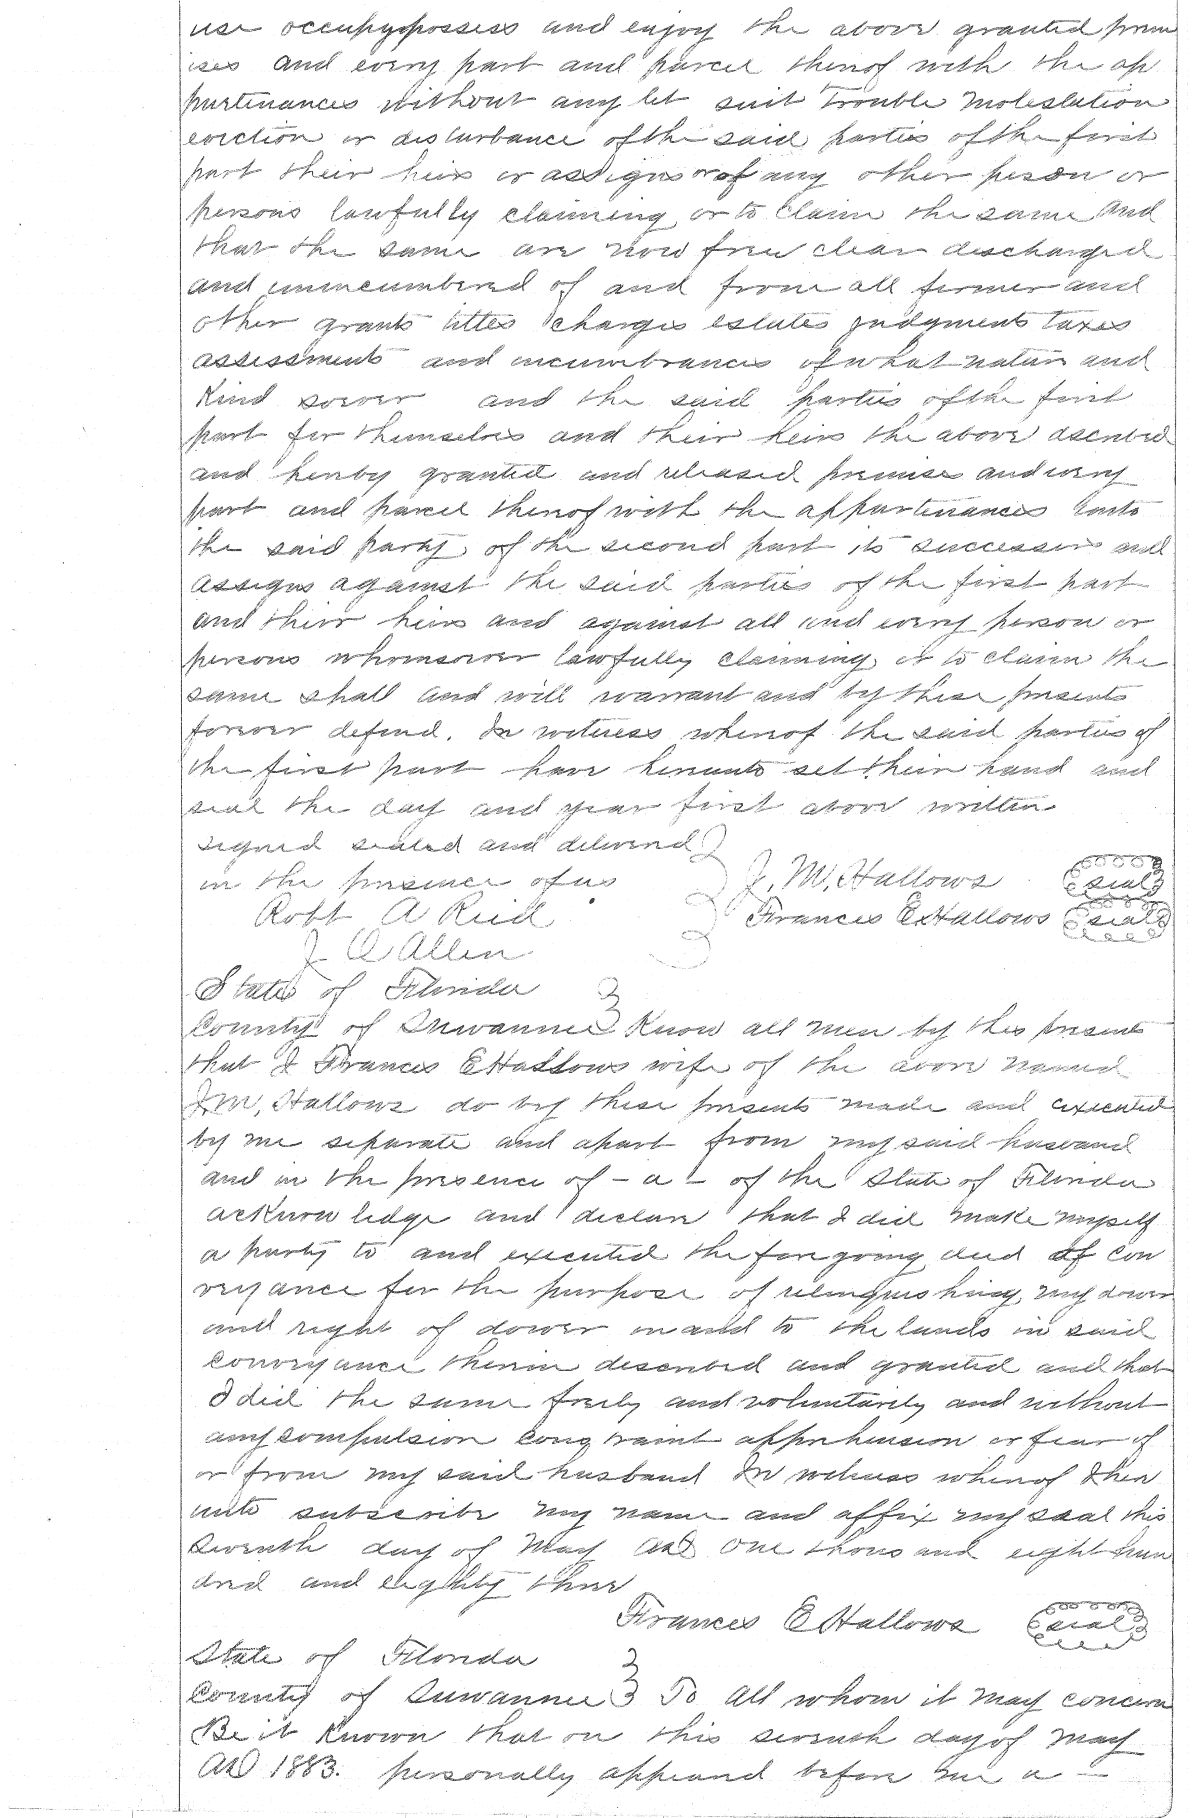 use occupy possess and enjoy the above granted prem
ises and every part and parcel thereof with the ap
purtenances without any let suit trouble molestation
eviction or disturbance of the said parties of the first
part their heirs or assigns or of any other peson or
persons lawfully claiming or to claim the same and
that the same are now free clear discharged
and unincumbered of and from all former and
other grants titles charges estates judgments taxes
assessments and incumbrances of what nature and
Kind soever and the said parties of the first
part for themselves and their heirs the above described
and hereby granted and released premises and every
part and parcel thereof with the appurtenances unto
the said party of the second part its successors and
assigns against the said parties of the first part
and their heirs and against all and every person or
persons whomsoever lawfully claiming or to claim the
same shall and will warrant and by these presents
forever defend. In witness whereof the said parties of
the first part have hereunto set their hand and
seal the day and year first above written
signed sealed and delivered
in the presence of us J. M. Hallows seal
Robt A Reid Frances E Hallows seal
J Q Allen
State of Florida
County of Suwannee Know all men by this presents
that I Frances E Hallows wife of the above named
J M. Hallows do by these presents made and executed
by me separate and apart from my said husband
and in the presence of - a - of the State of Florida
acknowledge and declare that I did make myself
a party to and executed the foregoing deed of con
veyance for the purpose of relinquishing my dower
and right of dower in and to the lands in said
conveyance therein described and granted and that
I did the same freely and voluntarily and without
any compulsion constraint apprehension or fear of
or from my said husband In witness whereof I here
unto subscribe my name and affix my seal this
Seventh day of May AD One thousand eight hun
dred and eighty three
Frances E Hallows seal
State of Florida
County of Suwannee To all whom it may concern
Be it Known that on this seventh day of May
AD 1883. personally appeared before me a -